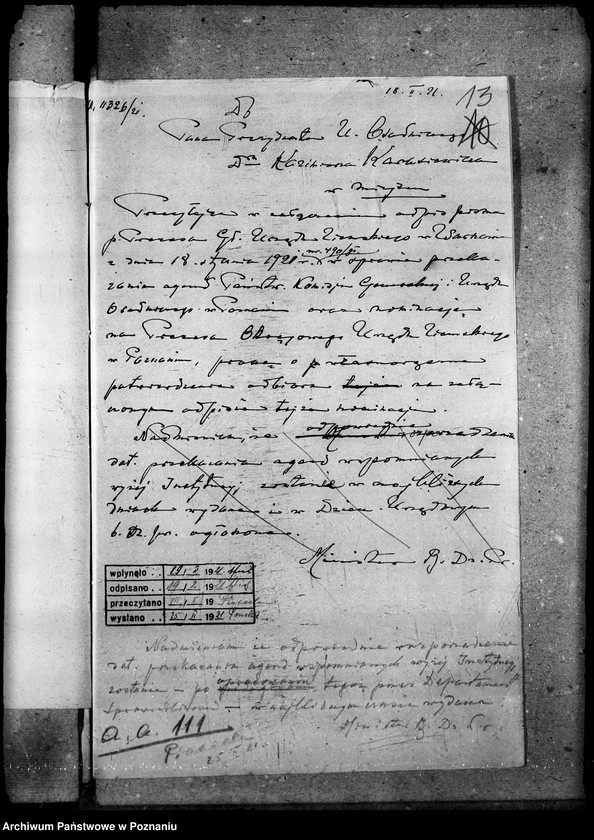 18. II. 21.
13
11326/21.
Db
10
Pana Prezydenta U. Osadniczego
Dra Kazimierza Karasiewicza
w miejscu
Przesyłając w załączeniu odpis pisma
p. Prezesa Gł. Urzędu Ziemskiego w Warszawie
nr. 490/pr.
z dnia 18. stycznia 1921 r. w sprawie przeka-
zania agend Państw. Komisji Generalnej i Urzędu
Osadniczego w Poznaniu oraz nominację
na Prezesa Okręgowego Urzędu Ziemskiego
w Poznaniu, proszę o własnoręczne
potwierdzenie odbioru tejże na załą-
czonym odpisie tejże nominacji.
odpowiednie
Nadmieniam, że rozporządzenie
dot. przekazania agend wspomnianych
wyżej Instytucji zostanie w najbliższych
dniach wydane i w Dzien. Urzędowym
b. Dz. pr. ogłoszone.
Minister B. Dz. Pr.
wpłynęło . . 19 / 2 1921
odpisano . . 19 / 2 1921
przeczytano / 19
wysłano . . 25 / II 1921
Nadmieniam że odpowiednie rozporządzenie
dot. przekazania agend wspomnianych wyżej Instytucji
opracowaniu
zostanie – po tegoż przez Departament
Sprawiedliwości – w najbliższym czasie wydane.
Minister B. Dz. Pr.
a. a. 111
25 II 21
Archiwum Państwowe w Poznaniu